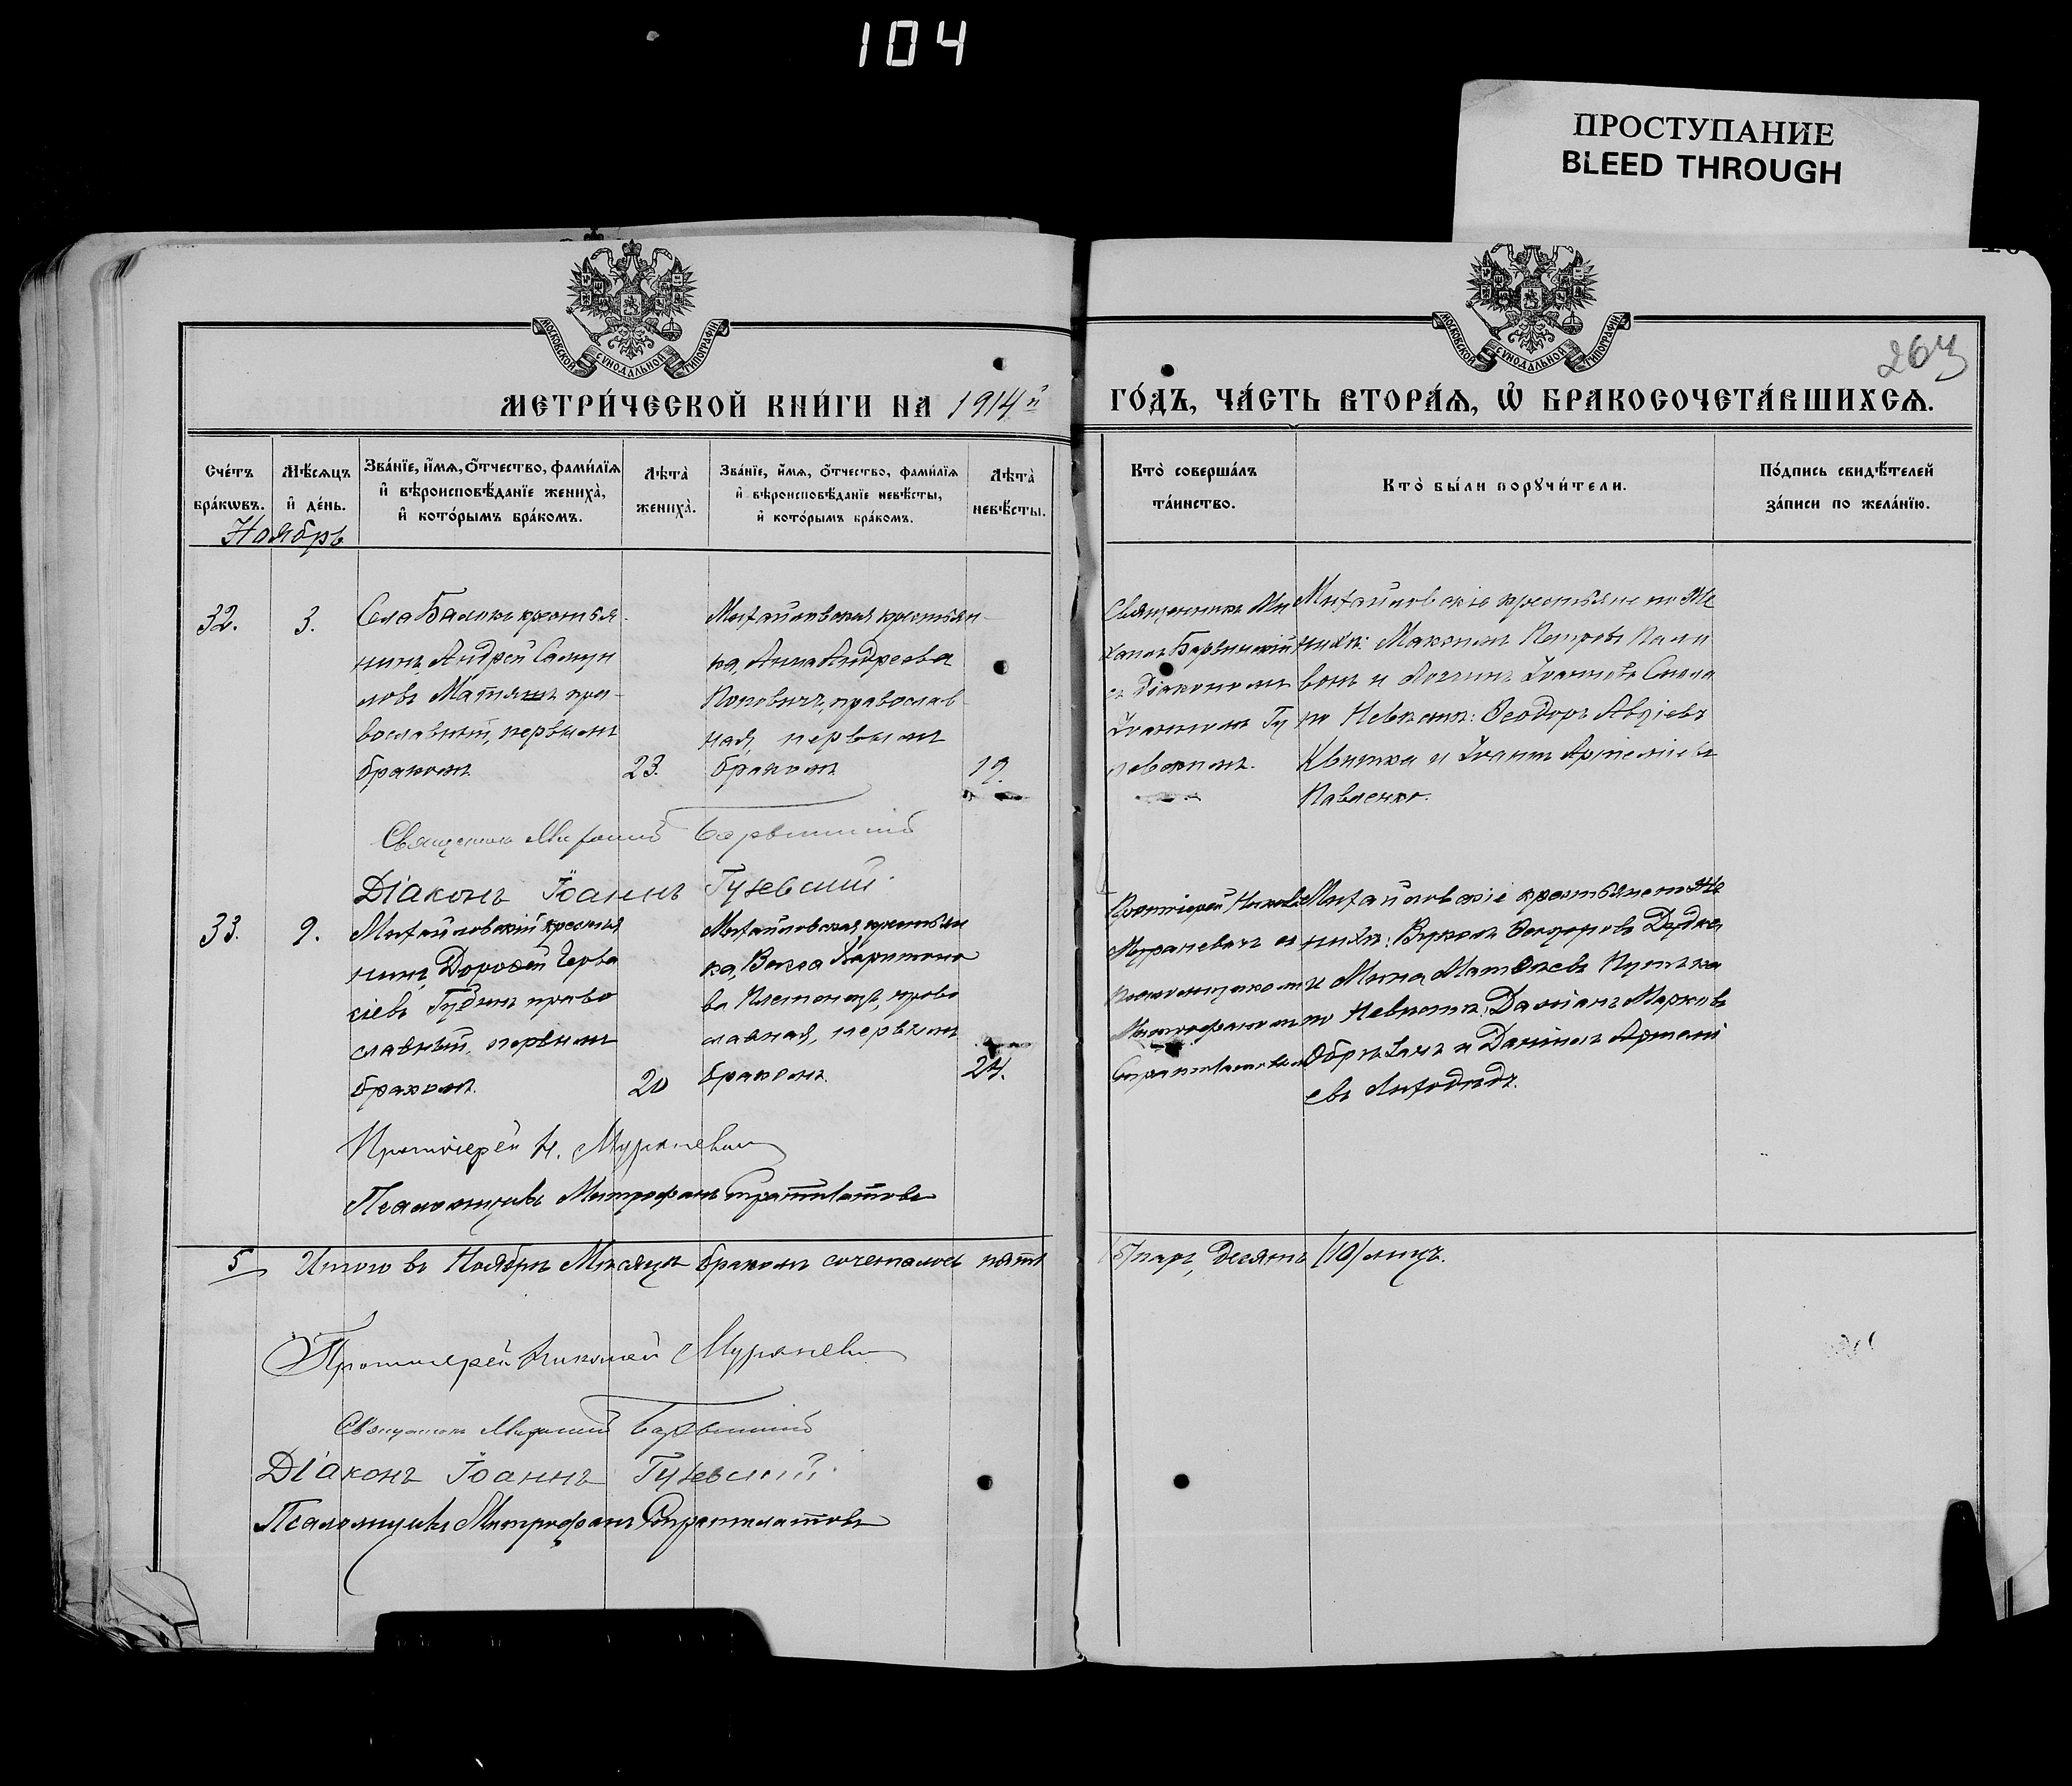 104
ПРОСТУПАНИЕ
BLEED THROUGH
МОСКОВСКОЙ СѴНОДАЛЬНОЙ ТИПОГРАФІИ
МОСКОВСКОЙ СѴНОДАЛЬНОЙ ТИПОГРАФІИ
264
МЕТРИ́ЧЕСКОЙ КНИ́ГИ НА 1914й
ГО́ДЪ, ЧА́СТЬ ВТОРА́Ѧ, Ѡ҆ БРАКОСОЧЕТА́ВШИХСѦ.
Сче́тъ
бра́кѡвъ.
Мѣ́сяцъ
и҆ де́нь.
Зва́нїе, и҆́мѧ, ѻ҆́тчество, фами́лїѧ
и҆ вѣроисповѣ́данїе жениха̀,
и҆ кото́рымъ бра́комъ.
Лѣта̀
жениха̀.
Зва́нїе, и҆́мѧ, ѻ҆́тчество, фами́лїѧ
и҆ вѣроисповѣ́данїе невѣ́сты,
и҆ кото́рымъ бра́комъ.
Лѣта̀
невѣ́сты.
Кто̀ соверша́лъ
та́инство.
Кто̀ бы́ли порꙋчи́тели.
По́дпись свидѣ́телей
за́писи по жела́нїю.
Ноябрь
32.
3.
Села Балокъ крестья-
нинъ, Андрей Самуи
ловъ Матяшъ пра-
вославный, первымъ
бракомъ
23.
Михайловская крестьян-
ка, Анна Андреева
Поповичъ, православ-
ная, первымъ
бракомъ
19.
Священникъ Ми
хаилъ Барвинскій
съ Діакономъ
Іоанномъ Гу
Михайловскіе крестьяне по Же
нихѣ: Максимъ Петровъ Пали
вода и Логгинъ Іоанновъ
по Невѣстѣ: Ѳеодоръ Авдіевъ
Квитка и Іоаннъ Артеміевъ
Павленко.
Священникъ Михаилъ Барвинскій
Діаконъ Іоаннъ
33.
9.
Михайловскій крестья
нинъ, Дороѳей Герва
сіевъ Гудимъ право
славный, первымъ
бракомъ.
20
Михайловская крестьян
ка, Васса Харитоно
ва православ
ная, первымъ
бракомъ.
24.
Протоіерей Николай
Мураневичъ съ
Псаломщикомъ
Митрофаномъ
Стратилатовымъ
Михайловскіе крестьяне по Же
нихѣ: Вуколъ Ѳеодоровъ Дудка
и Мина Матѳіевъ
по Невѣстѣ: Даміанъ Марковъ
и Даніилъ Артемі
евъ Лиходѣдъ.
Протоіерей Н. Мураневичъ
Псаломщикъ Митрофанъ Стратилатовъ
5 Итого въ Ноябрѣ Мѣсяцѣ бракомъ сочеталось пять (5) паръ, десять (10) лицъ.
Протоіерей Николай Мураневичъ
Священникъ Михаилъ Барвинскій
Діаконъ Іоаннъ
Псаломщикъ Митрофанъ Стратилатовъ